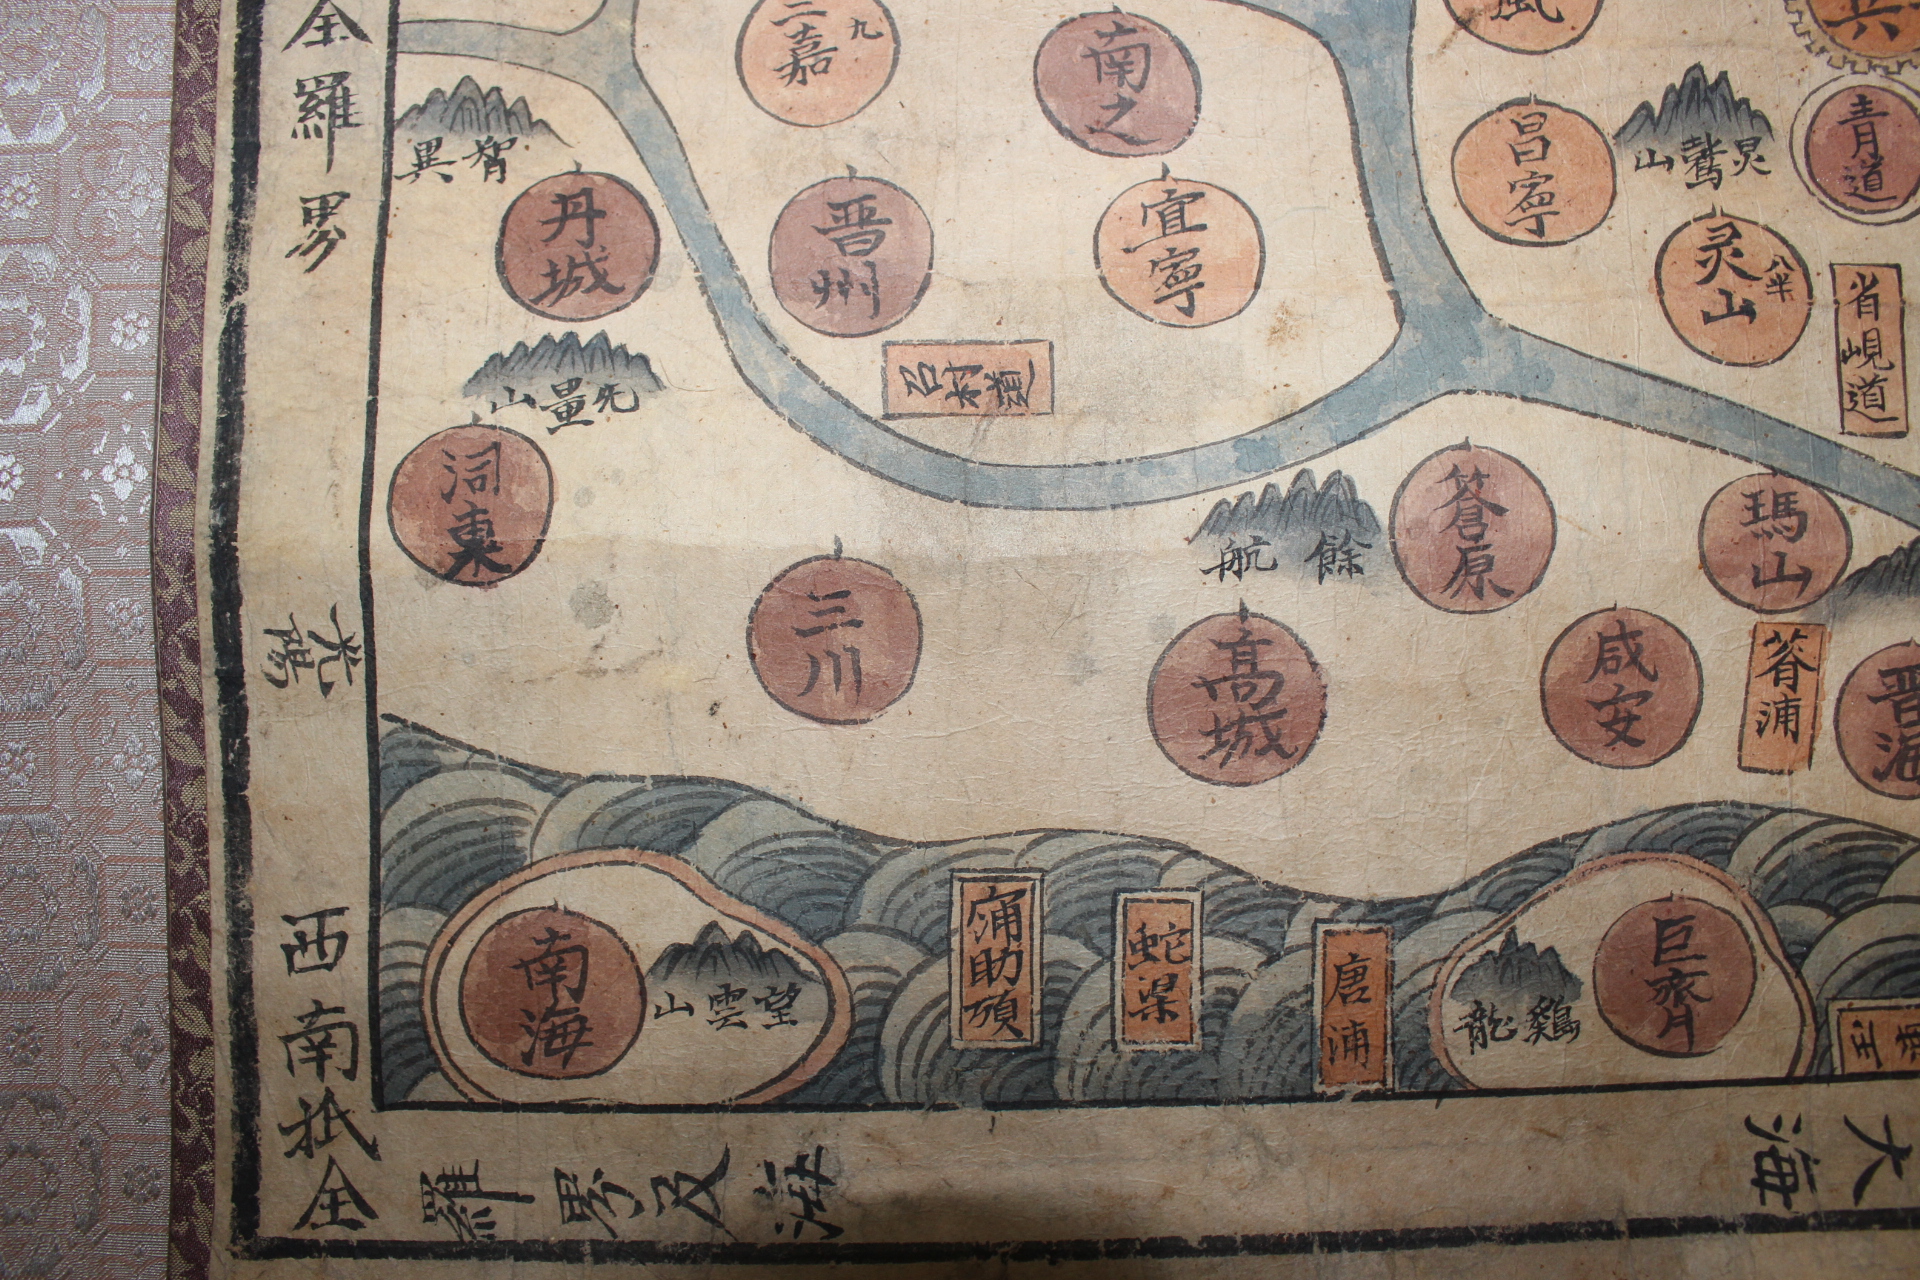 全羅界
光陽
西南抵全
羅界及海
大海
三嘉
九
南之
智異
丹城
晋州
宜寧
昌寧
灵鷲山
青道
灵山
八半
省峴道
召村道
先量山
洞東
三川
餘航
蒼原
瑪山
高城
咸安
晋海
南海
望雲山
蛇梁
唐浦
鷄龍
巨济